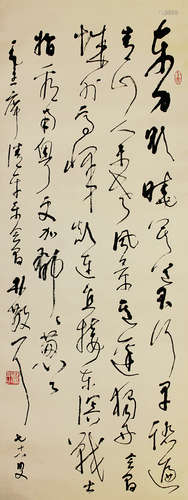 东方欲晓莫道君行早踏遍
青山人未老风景这边独好会昌
城外高峰颠连直接东溟战士
指看南粤更加郁郁葱葱
毛主席清平乐会昌 林散耳